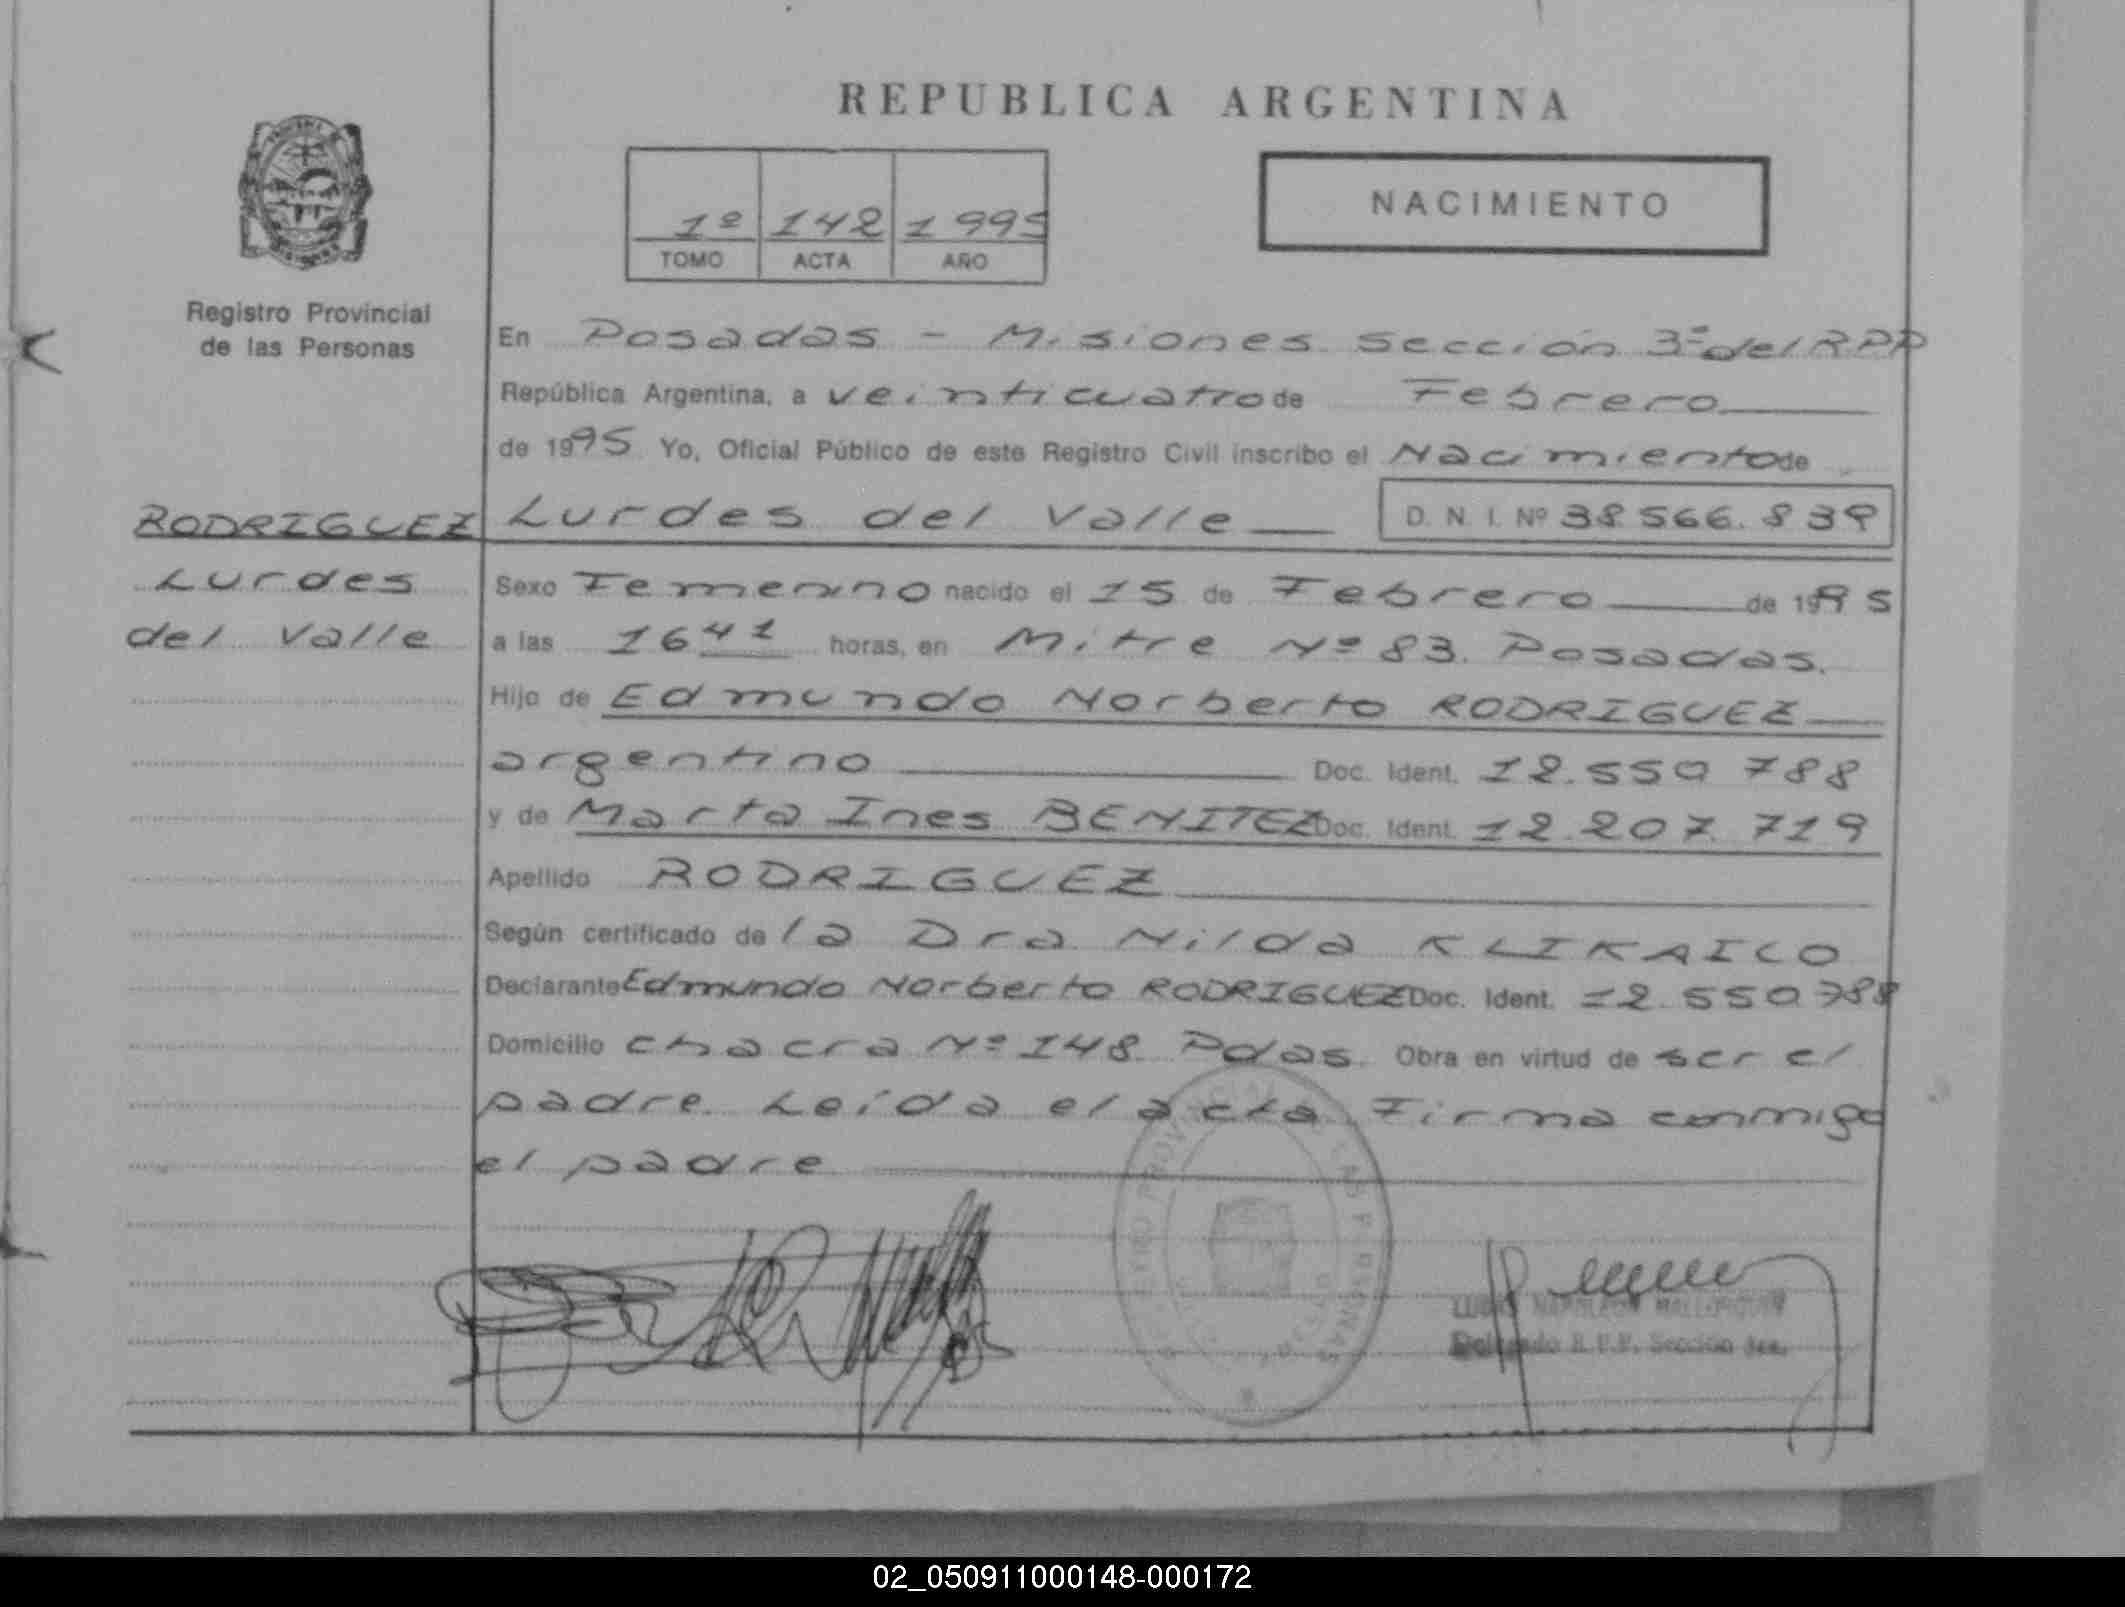 REPUBLICA ARGENTINA
1º 142 1995
TOMO ACTA AÑO
NACIMIENTO
Registro Provincial
de las Personas
En Posadas - Misiones Sección 3ª del RPP
República Argentina, a veinticuatro de Febrero
de 1995 Yo, Oficial Público de este Registro Civil inscribo el Nacimiento de
RODRIGUEZ
Lurdes
del Valle
Lurdes del Valle D. N. I. Nº 38 566. 839
Sexo Femenino nacido el 15 de Febrero de 1995
a las 16 41 horas, en Mitre Nº 83. Posadas.
Hijo de Edmundo Norberto RODRIGUEZ
argentino Doc. Ident. 12.550 788
y de Marta Ines BENITEZ Doc. Ident. 12.207 719
Apellido RODRIGUEZ
Según certificado de la Dra Nilda KLIKAILO
Declarante Edmundo Norberto RODRIGUEZ Doc. Ident. 12.550 788
Domicilio chacra Nº 148 Pdas. Obra en virtud de ser el
padre Leída el acta Firma conmigo
el padre
REGISTRO PROVINCIAL DE LAS PERSONAS
NAPOLEON
Delegado R.P.P. Sección 3ra.
02_050911000148-000172